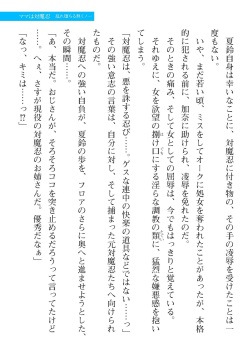 ママは対魔忍
夏鈴自身は幸いなことに、対魔忍に付き物の、その手の凌辱を受けたことは一
度もない。
いや、まだ若い頃、ミスをしてオークに処女を奪われたことがあったが、本格
的に犯される前に、加奈に助けられ、凌辱を免れたのだ。
そのときの痛み、そして女としての屈辱は、今でもはっきりと覚えている。
それゆえに、女を欲望の捌け口にする淫らな調教の類に、猛烈な嫌悪感を抱い
てしまう。
「対魔忍は、悪を誅する忍び……。ゲスな連中の快楽の道具などではない……っ」
その強い意志の言葉は、自分に対し、そして捕まった元対魔忍たちへ向けられ
たものだ。
対魔忍への強い自負が、夏鈴の歩を、フロアのさらに奥へと進ませようとした、
その瞬間……。
「あ、本当だ。おじさんが、そろそろココを突き止めるだろうって言ってたけど
……。へぇ、さすが現役の対魔忍のお姉さんだ、優秀だなぁ」
「なっ、キミは……っ!?」